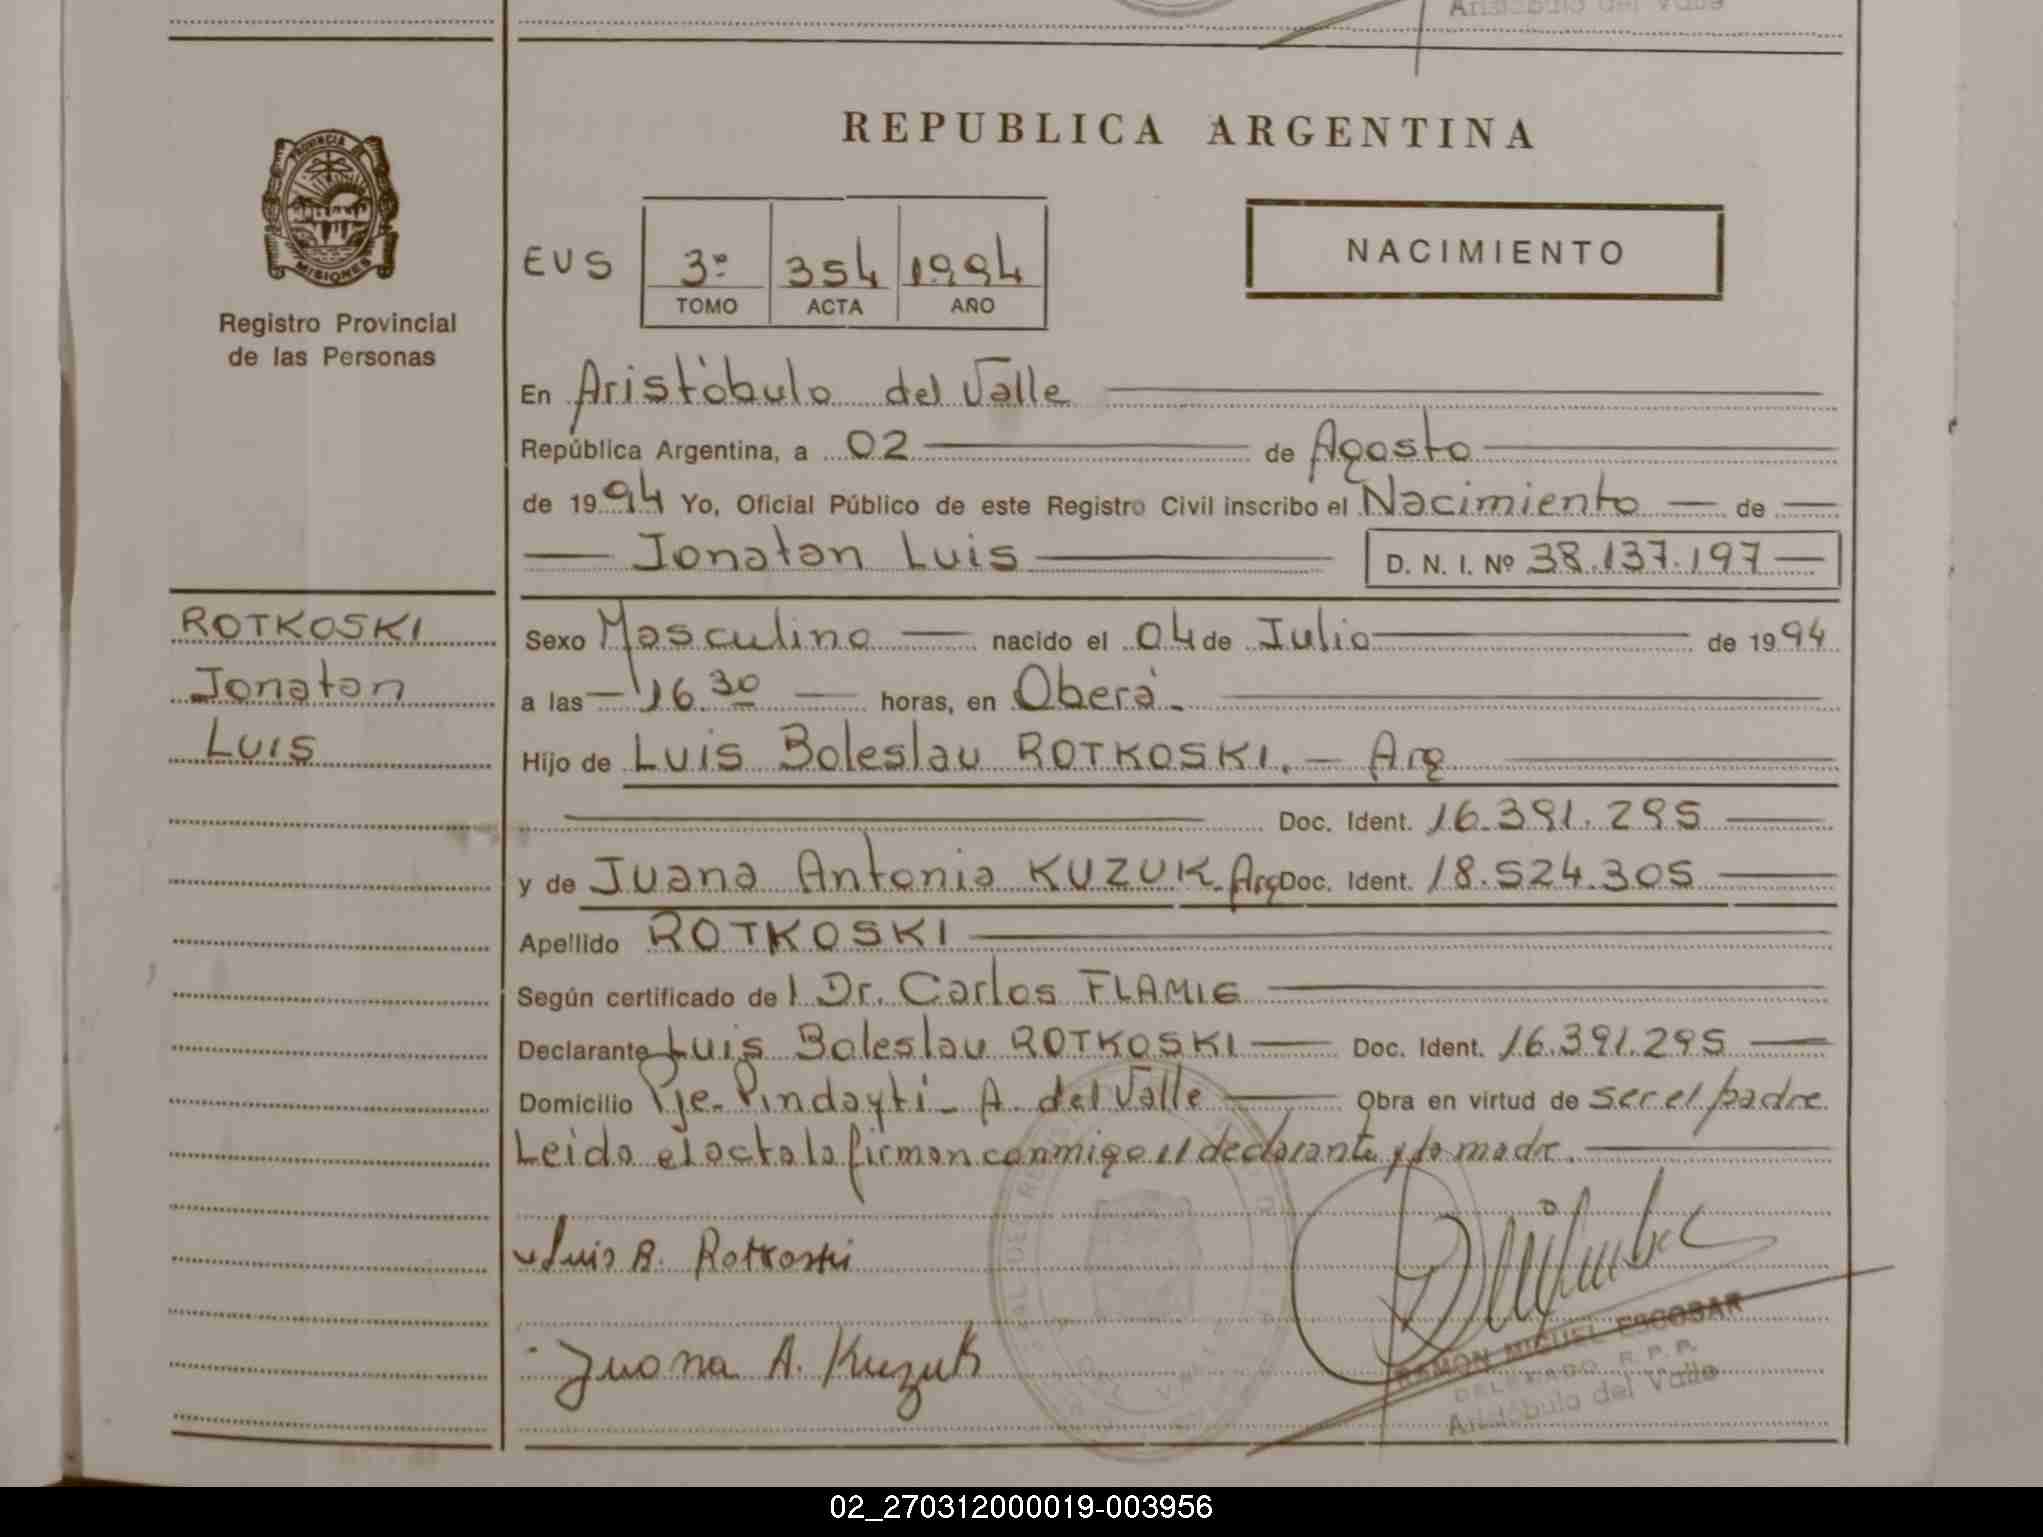 Aristóbulo del Valle
REPUBLICA ARGENTINA
PROVINCIA DE
MISIONES
Registro Provincial
de las Personas
EVS 3º 354 1994
TOMO ACTA AÑO
NACIMIENTO
En Aristóbulo del Valle
República Argentina, a 02 de Agosto
de 1994 Yo, Oficial Público de este Registro Civil inscribo el Nacimiento de
Jonatan Luis D. N. I. Nº 38.137.197
ROTKOSKI
Jonatan
Luis
Sexo Masculino nacido el 04 de Julio de 1994
a las 16.30 horas, en Oberá
Hijo de Luis Boleslau ROTKOSKI. Arg
Doc. Ident. 16.391.295
y de Juana Antonia KUZUK. Arg Doc. Ident. 18.524.305
Apellido ROTKOSKI
Según certificado de l Dr. Carlos FLAMIG
Declarante Luis Boleslau ROTKOSKI Doc. Ident. 16.391.295
Domicilio Pje. Pindaytí - A. del Valle Obra en virtud de ser el padre
Leida el acta la firman conmigo el declarante y la madre.
Luis B. Rotkoski
Juana A. Kuzuk
RAMON MIGUEL ESCOBAR
DELEGADO R.P.P.
Aristóbulo del Valle
02_270312000019-003956